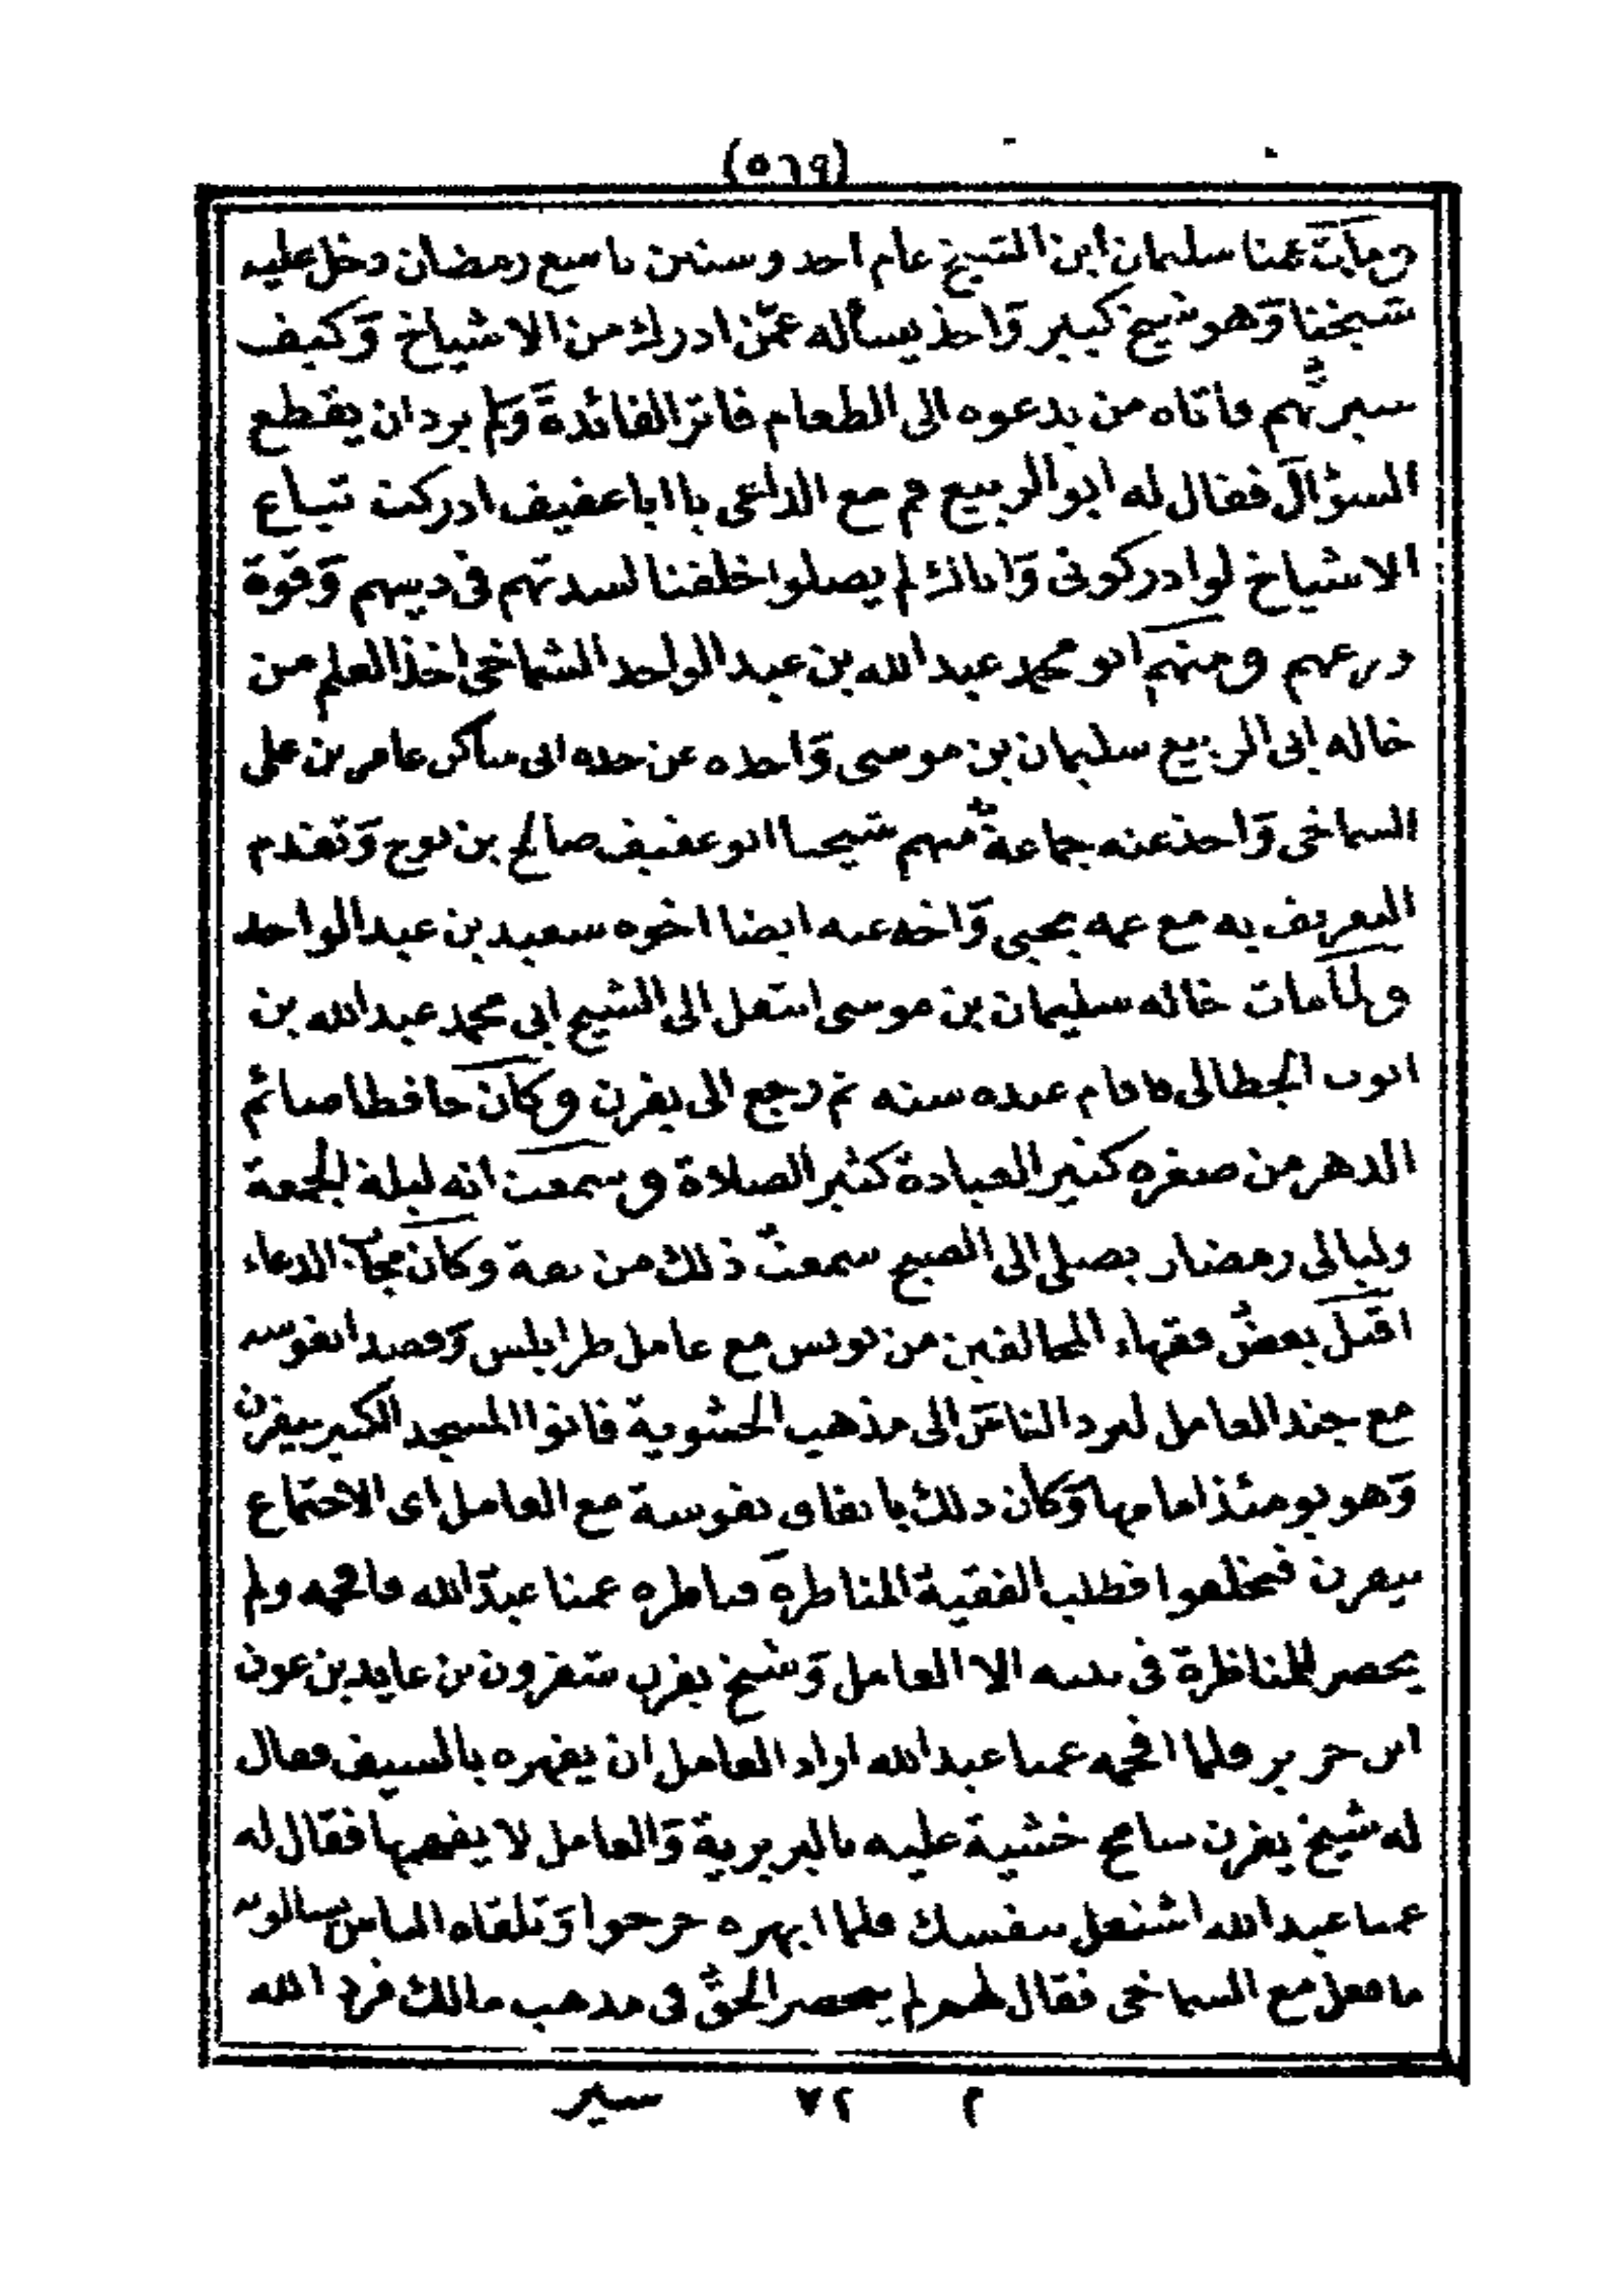 (٥٦٩)
ومات عمنا سليمان ابن الشيخ عام احد وستين تاسع رمضان دخل عليه
شيخنا وهو شيخ كبير واخذ يسأله عمّن ادرك من الاشياخ وكيف
سيرتهم فاتاه من يدعوه الى الطعام فاثر الفائدة ولم يرد ان يقطع
السؤال فقال له ابو الربيع قم مع الداعى يا ابا عفيف ادركت تباع
الاشياخ لو ادركونى واياك لم يصلوا خلفنا لشدتهم فى دينهم وقوة
ورعهم ومنهم ابو محمد عبد الله بن عبد الواحد الشماخى اخذ العلم من
خاله ابى الربيع سليمان بن موسى واخذه عن جده ابى ساكن عامر بن على
الشماخى واخذ عنه جماعة منهم شيخنا ابو عفيف صالح بن نوح وتقدم
التعريف به مع عمه يحيى واخذ عنه ايضا اخوه سعيد بن عبد الواحد
ولما مات خاله سليمان بن موسى انتقل الى الشيخ ابى محمد عبد الله بن
ايوب الجطالى فاقام عنده سنه ثم رجع الى يفرن وكان حافظا صائم
الدهر من صغره كثير العبادة كثير الصلاة وسمعت انه ليلة الجمعة
وليالى رمضان يصلى الى الصبح سمعت ذلك من ثقة وكان مجاب الدعاء
اقبل بعض فقهاء المخالفين من تونس مع عامل طرابلس وقصدا نفوسه
مع جند العامل ليرد الناس الى مذهب الحشوية فاتوا المسجد الكبير بيفرن
وهو يومئذ امامها وكان ذلك باتفاق نفوسة مع العامل اى الاجتماع
بيفرن فتخلفوا فطلب الفقيه المناظرة فناظره عمنا عبد الله فافحمه ولم
يحضر للمناظرة فى بيته الا العامل وشيخ يفرن شقرون بن عايد بن عون
ابن حرير فلما افحمه عمنا عبد الله اراد العامل ان يقهره بالسيف فقال
له شيخ يفرن سامح خشية عليه بالبربرية والعامل لا يفهمها فقال له
عمنا عبد الله اشتغل بنفسك فلما ابهره خرجوا وتلقاه الناس يسالونه
ما فعل مع الشماخى فقال لهم لم يحصر الحق فى مذهب مالك فرد الله
م ٧٢ سير